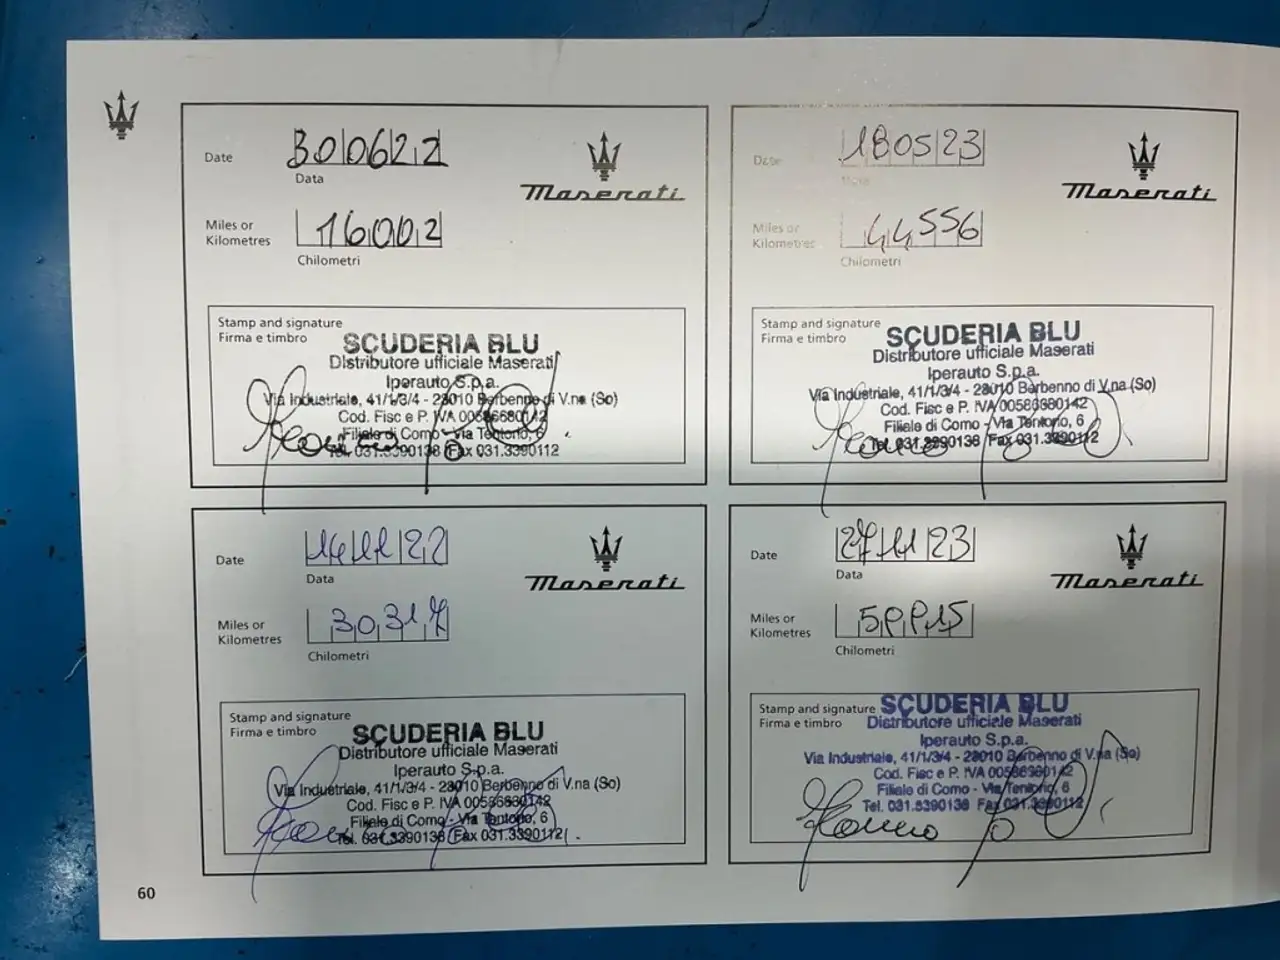 Date 300622
Data
Maserati
Miles or
Kilometres 16002
Chilometri
Stamp and signature
Firma e timbro
SCUDERIA BLU
Distributore ufficiale Maserati
Iperauto S.p.a.
Via Industriale, 41/1/3/4 - 23010 Berbenno di V.na (So)
Cod. Fisc e P. IVA 00586680142
Filiale di Como - Via Tentorio, 6
Tel. 031.3390138 Fax 031.3390112
Date 180523
Maserati
Miles or
Kilometres 44556
Chilometri
Stamp and signature
Firma e timbro
SCUDERIA BLU
Distributore ufficiale Maserati
Iperauto S.p.a.
Via Industriale, 41/1/3/4 - 23010 Berbenno di V.na (So)
Cod. Fisc e P. IVA 00586680142
Filiale di Como - Via Tentorio, 6
Tel. 031.3390138 Fax 031.3390112
Date 141122
Data
Maserati
Miles or
Kilometres 30317
Chilometri
Stamp and signature
Firma e timbro
SCUDERIA BLU
Distributore ufficiale Maserati
Iperauto S.p.a.
Via Industriale, 41/1/3/4 - 23010 Berbenno di V.na (So)
Cod. Fisc e P. IVA 00586680142
Filiale di Como - Via Tentorio, 6
Tel. 031.3390138 Fax 031.3390112
Date 271123
Data
Maserati
Miles or
Kilometres
Chilometri
Stamp and signature
Firma e timbro
SCUDERIA BLU
Distributore ufficiale Maserati
Iperauto S.p.a.
Via Industriale, 41/1/3/4 - 23010 Berbenno di V.na (So)
Cod. Fisc e P. IVA 00586680142
Filiale di Como - Via Tentorio, 6
Tel. 031.3390138 Fax 031.3390112
60